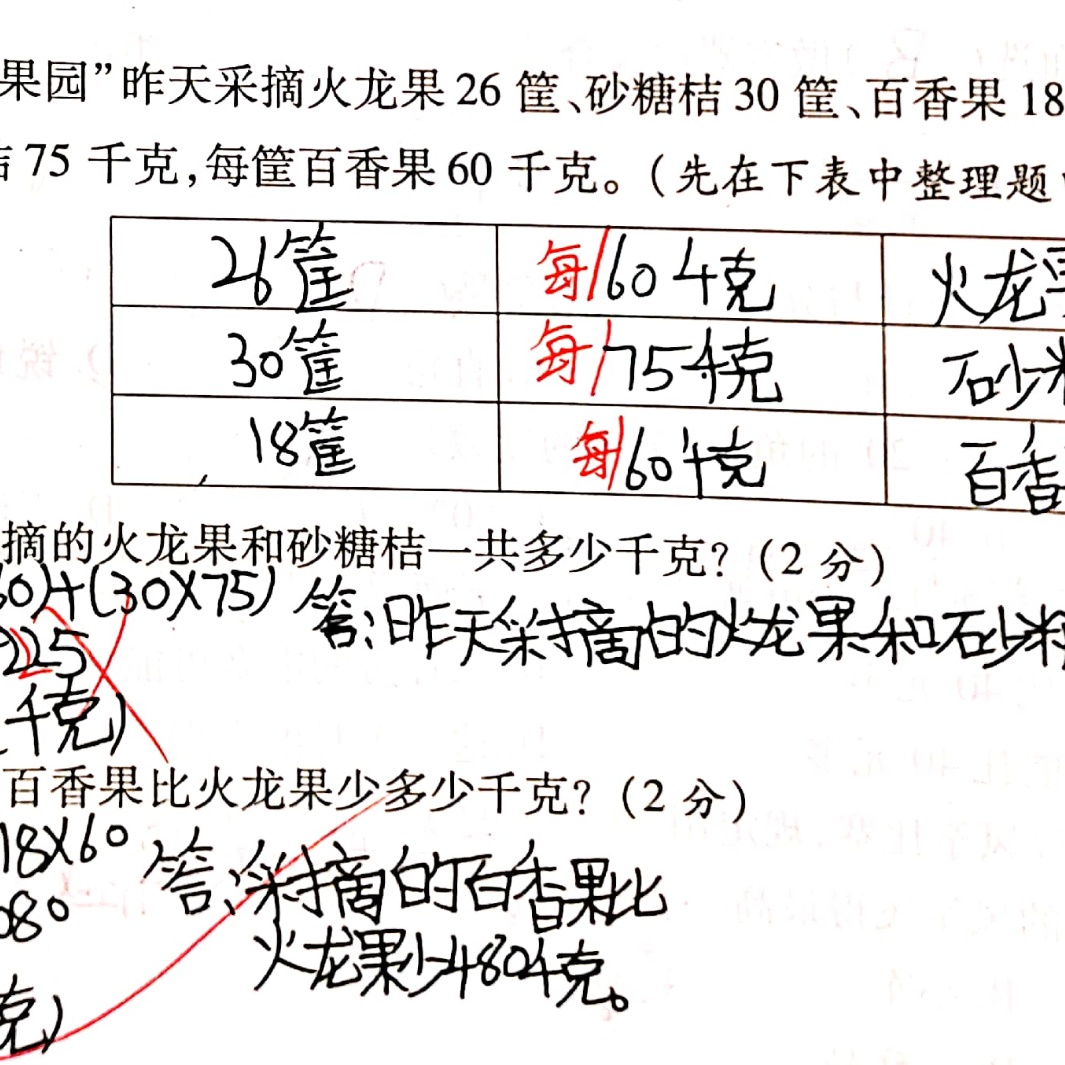 果园”昨天采摘火龙果 26 筐、砂糖桔 30 筐、百香果 18
75 千克,每筐百香果 60 千克。(先在下表中整理题
26筐 每/60千克 火龙果
30筐 每/75千克 砂
18筐 每/60千克 百香
摘的火龙果和砂糖桔一共多少千克?(2 分)
60)+(30×75) 答:昨天采摘的火龙果和砂
225
千克)
百香果比火龙果少多少千克?(2 分)
18×60 答:采摘的百香果比
080 火龙果少480千克。
克)